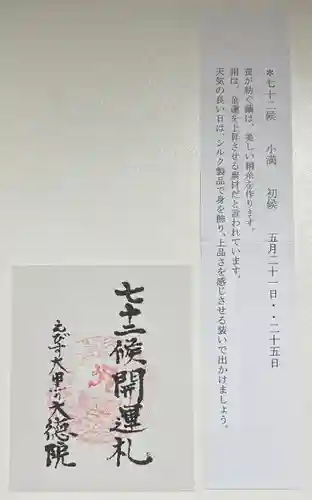 *七十二候　小満　初候　五月二十一日・・二十五日
蚕が紡ぐ繭は、美しい絹糸を作ります。
絹は、金運を上昇させる素材だと言われています。
天気の良い日は、シルク製品で身を飾り、上品さを感じさせる装いで出かけましょう。
七十二候開運札
えびす大黒の大徳院